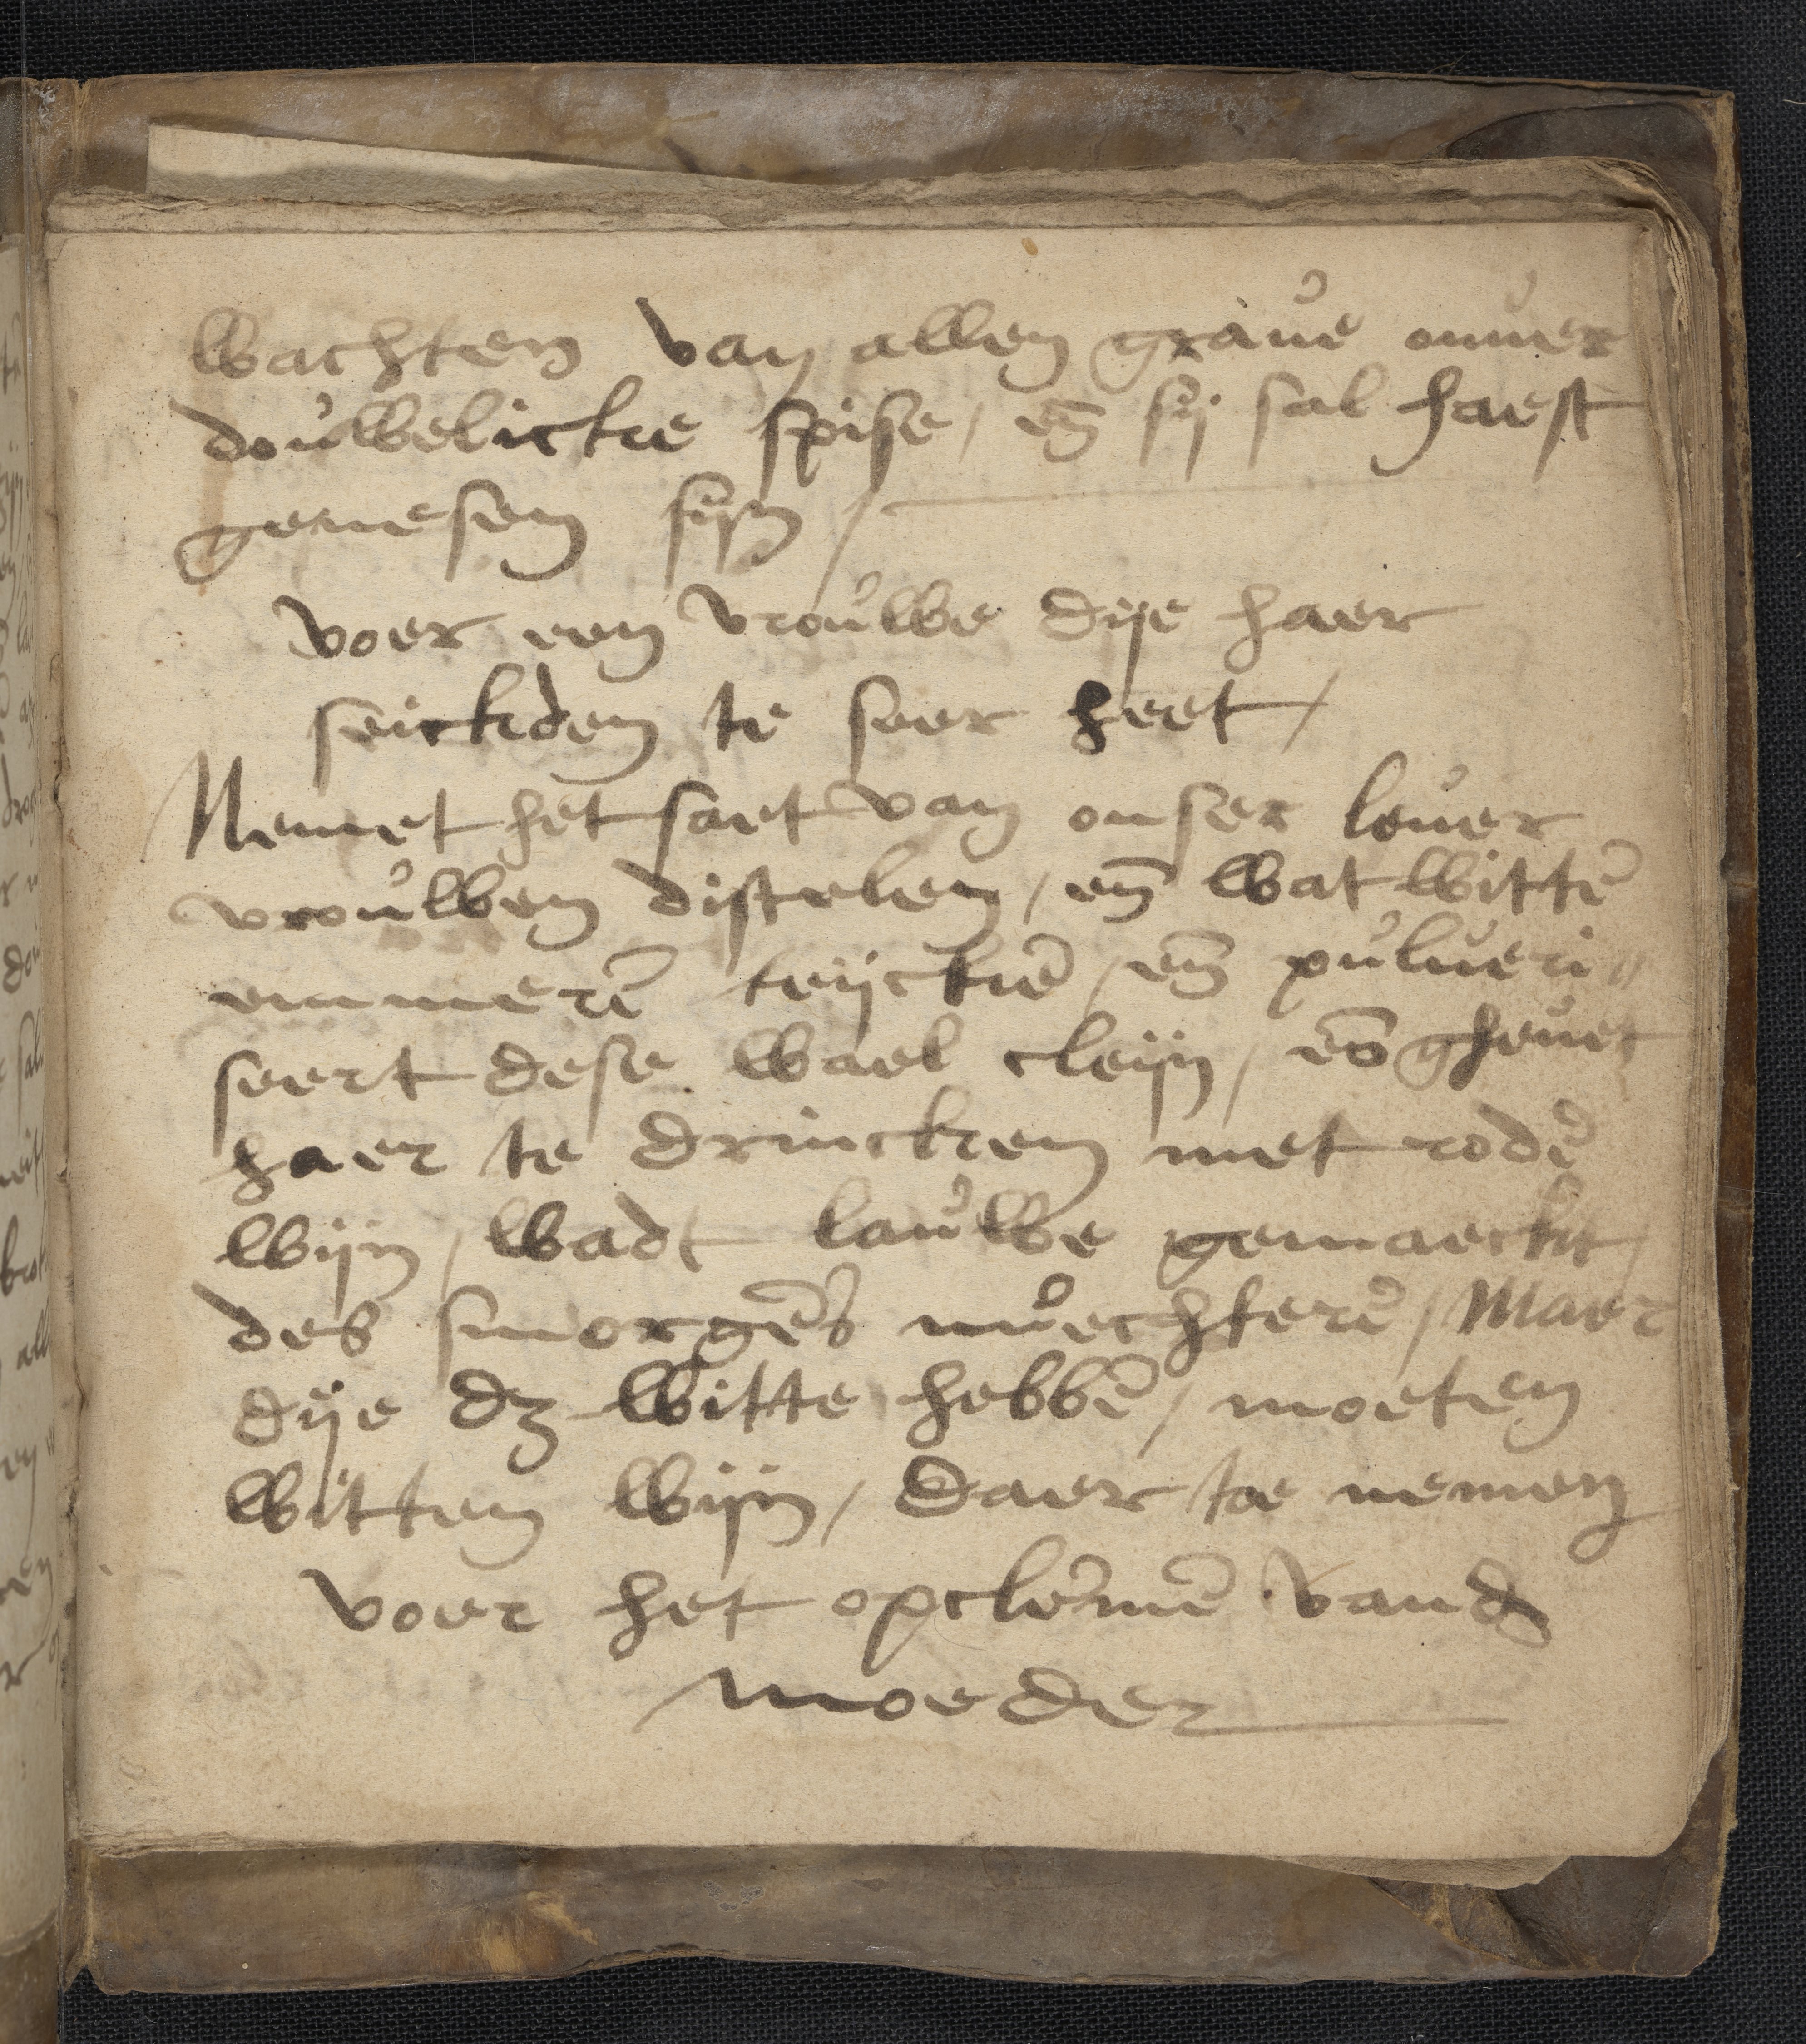 wachten van allen graue onuer
douwelicke spise / en̄ sij sal haest
genesen sijn /
voer een vrouwe dije haer
seickden te seer heet /
Nemet het saet van onser leuer
vrouwen distelen / en̄ wat wittē
emmerē teijckē / en̄ pulueri〃
seert dese wael cleijn / en̄ gheuet
haer te drincken met rodē
wijn / wadt lauwe gemaeckt /
des smorgēs nuechterē / Maer
dije dz witte hebbē / moeten
witten wijn / daer toe nemen
voer het opclēmē vand
moeder